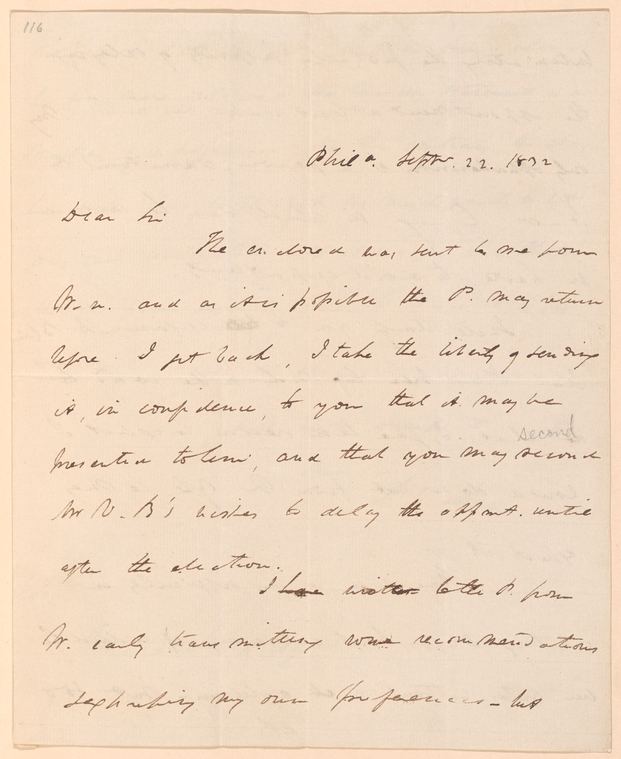 116
Phila. Septr. 22. 1832
Dear Sir
The enclosed was sent to me from
and as it is possible the P. may return
before I get back, I take the liberty of sending
it, in confidence, to you that it may be
second
presented to him, and that you may second
Mr V. B's wishes to delay the appmt. until
after the election.
I have written to the P. from
W. early transmitting some recommendations
& expressing my own preferences - but